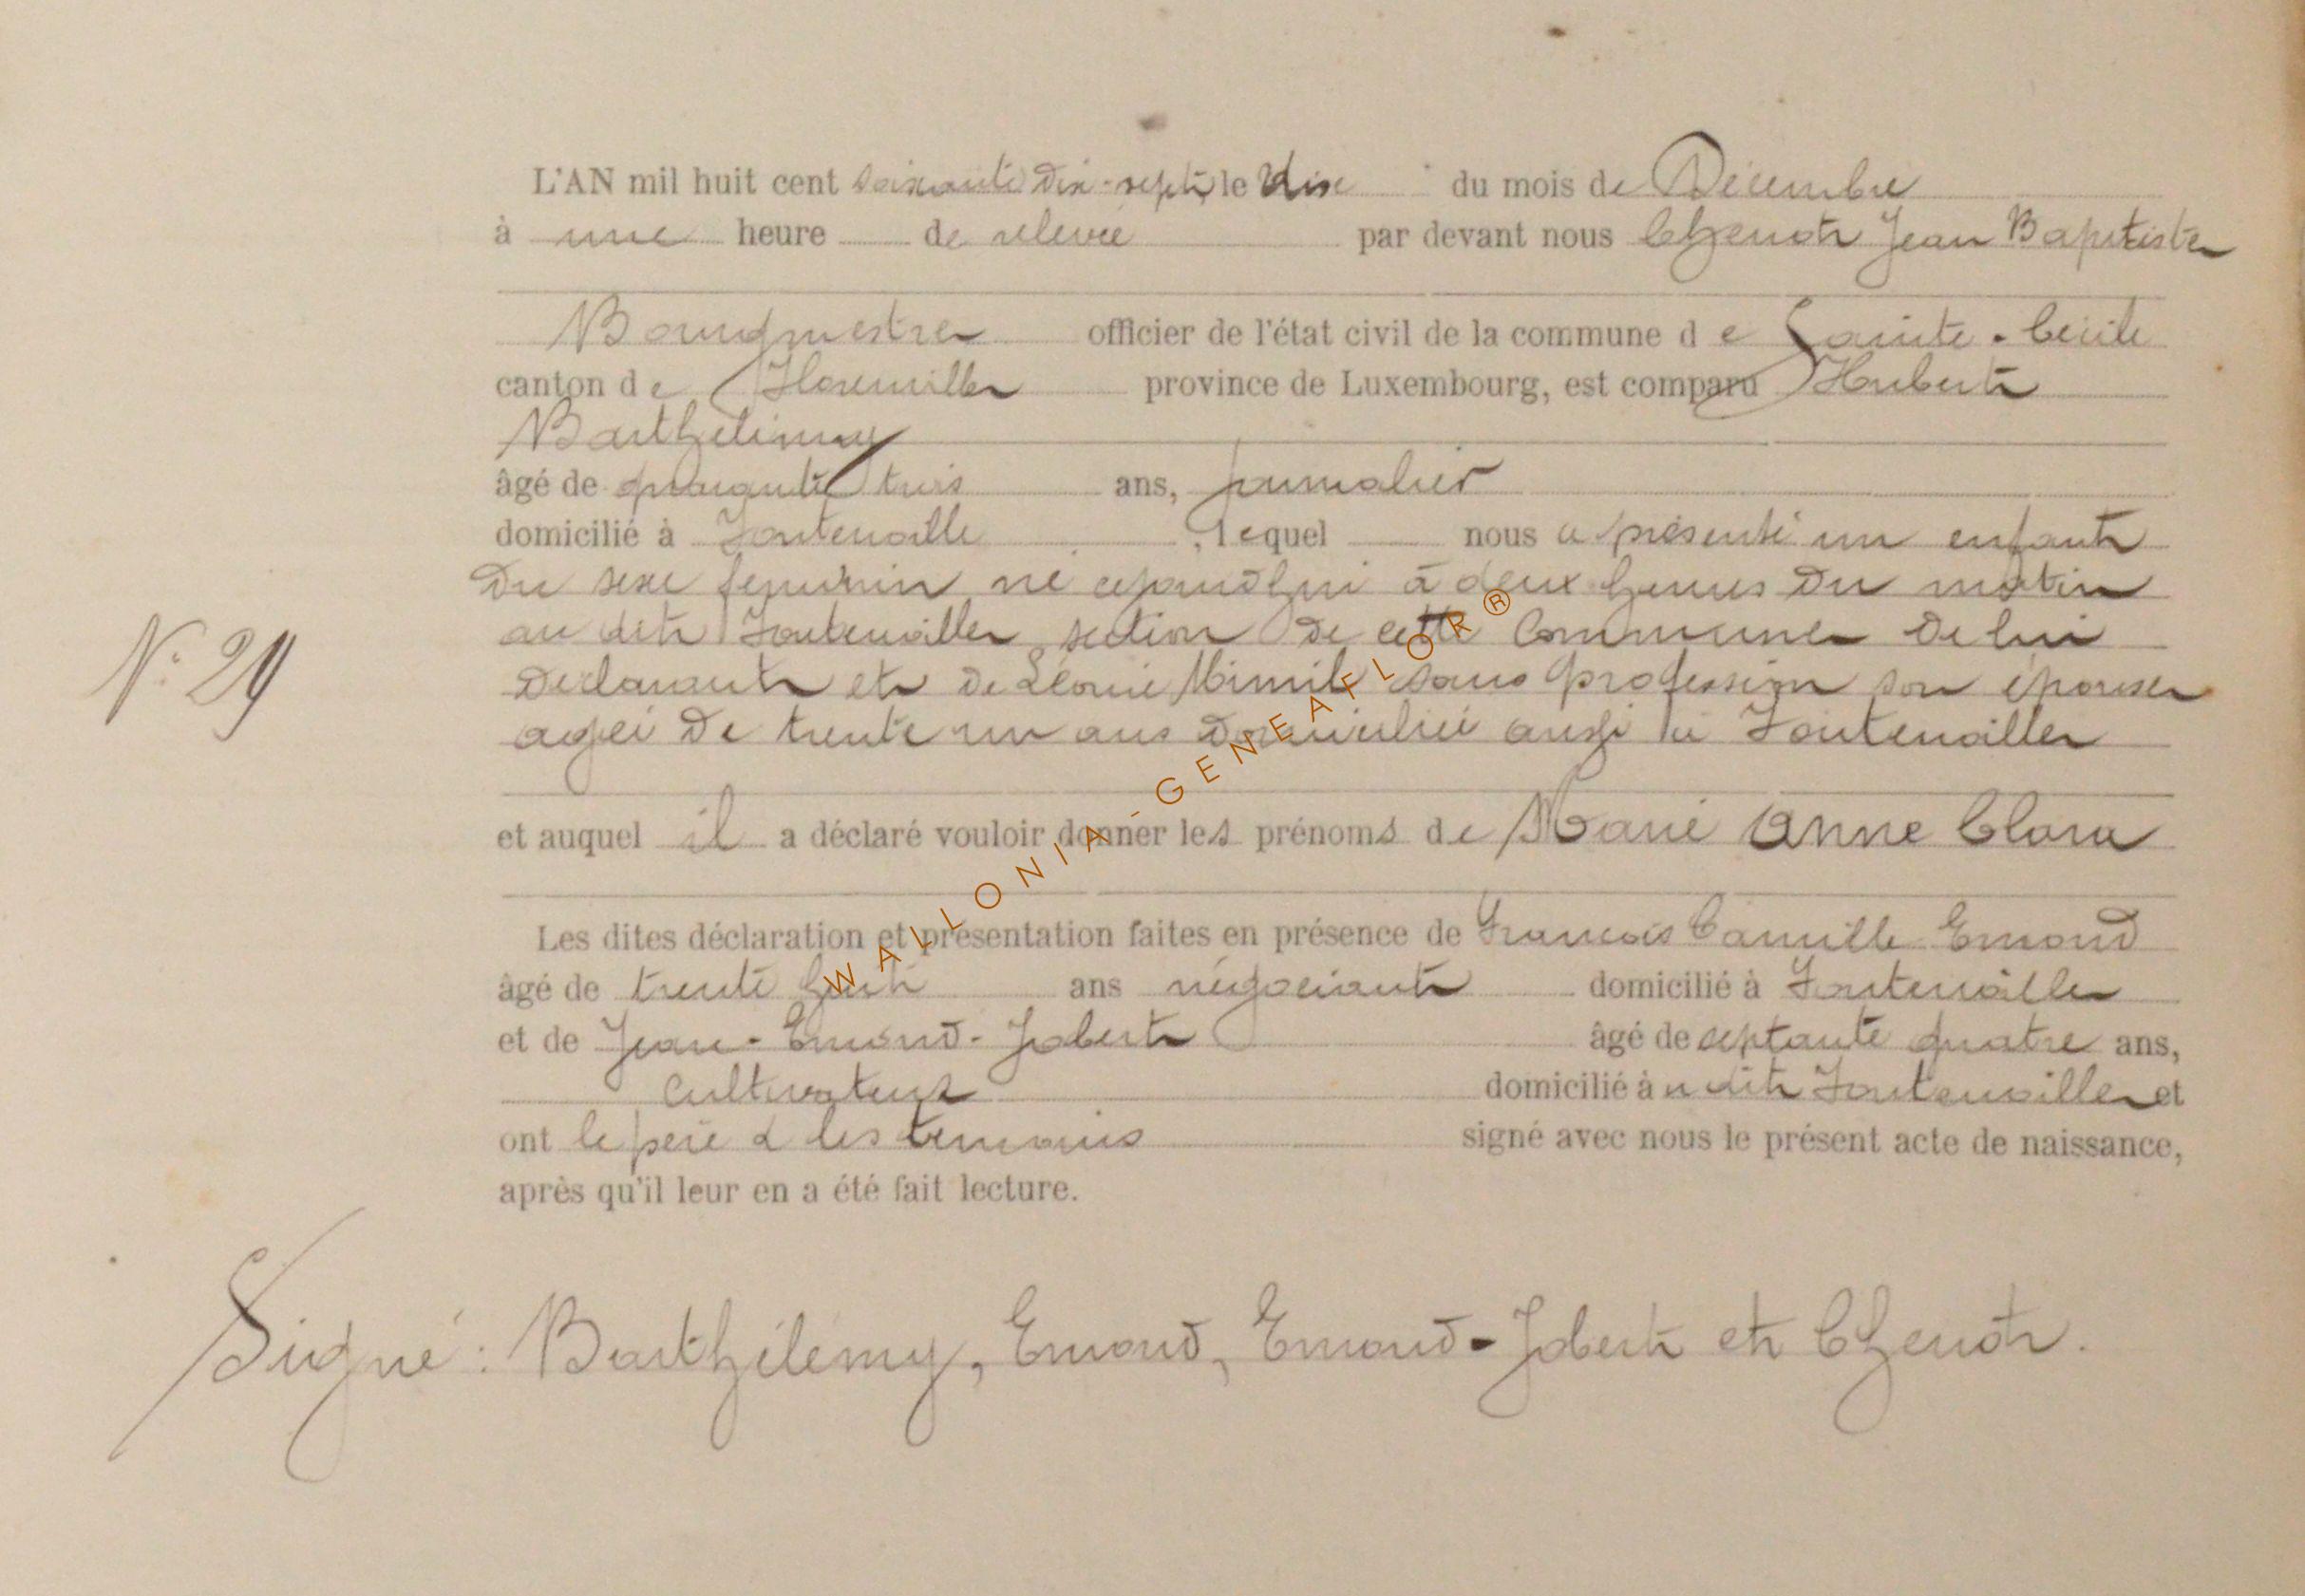 L'AN mil huit cent soixante dix-sept le du mois de Décembre
à une heure de relevée par devant nous Chenot Jean Baptiste
Bourgmestre officier de l'état civil de la commune de Sainte-Cécile
canton de Florenville province de Luxembourg, est comparu Hubert
Barthélémy
âgé de quarante trois ans, journalier
domicilié à Fontenoille, lequel nous a présenté un enfant
du sexe féminin né cejourd'hui à deux heures du matin
N° 29
au dit Fontenoille section de cette Commune de lui
déclarant et de Léonie sans profession son épouse
agée de trente un ans domiciliée aussi à Fontenoille
et auquel il a déclaré vouloir donner les prénoms de Marie Anne Clara
Les dites déclaration et présentation faites en présence de François Camille Emond
âgé de trente huit ans négociant domicilié à Fontenoille
et de Jean-Emond-Jobert âgé de septante quatre ans,
cultivateur domicilié àu dit Fontenoille et
ont le père & les témoins signé avec nous le présent acte de naissance,
après qu'il leur en a été fait lecture.
Signé : Barthélémy, Emond, Emond-Jobert et Chenot.
WALLONIA-GENEAFLOR®